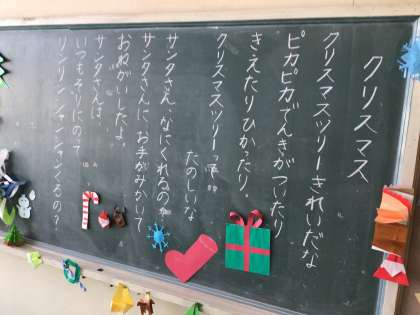 クリスマス
クリスマスツリーきれいだな
ピカピカでんきがついたり
きえたりひかったり。
クリスマスツリーって
たのしいな
サンタさん、なにくれるのかな
サンタさんに、お手がみかいて
おねがいしたよ。
サンタさんは、
いつもそりにのって
リンリンシャンシャンくるの?